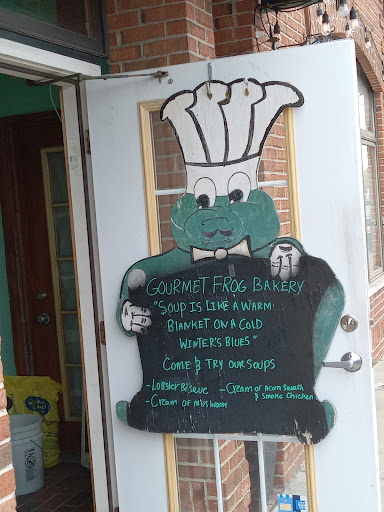 GOURMET FROG BAKERY
"SOUP IS LIKE A WARM
BLANKET ON A COLD
WINTER'S BLUES"
COME & TRY OUR SOUPS
- LOBSTER BISAVE
- CREAM OF MUSHROOM
- CREAM OF ACORN SQUASH
& SMOKE CHICKEN